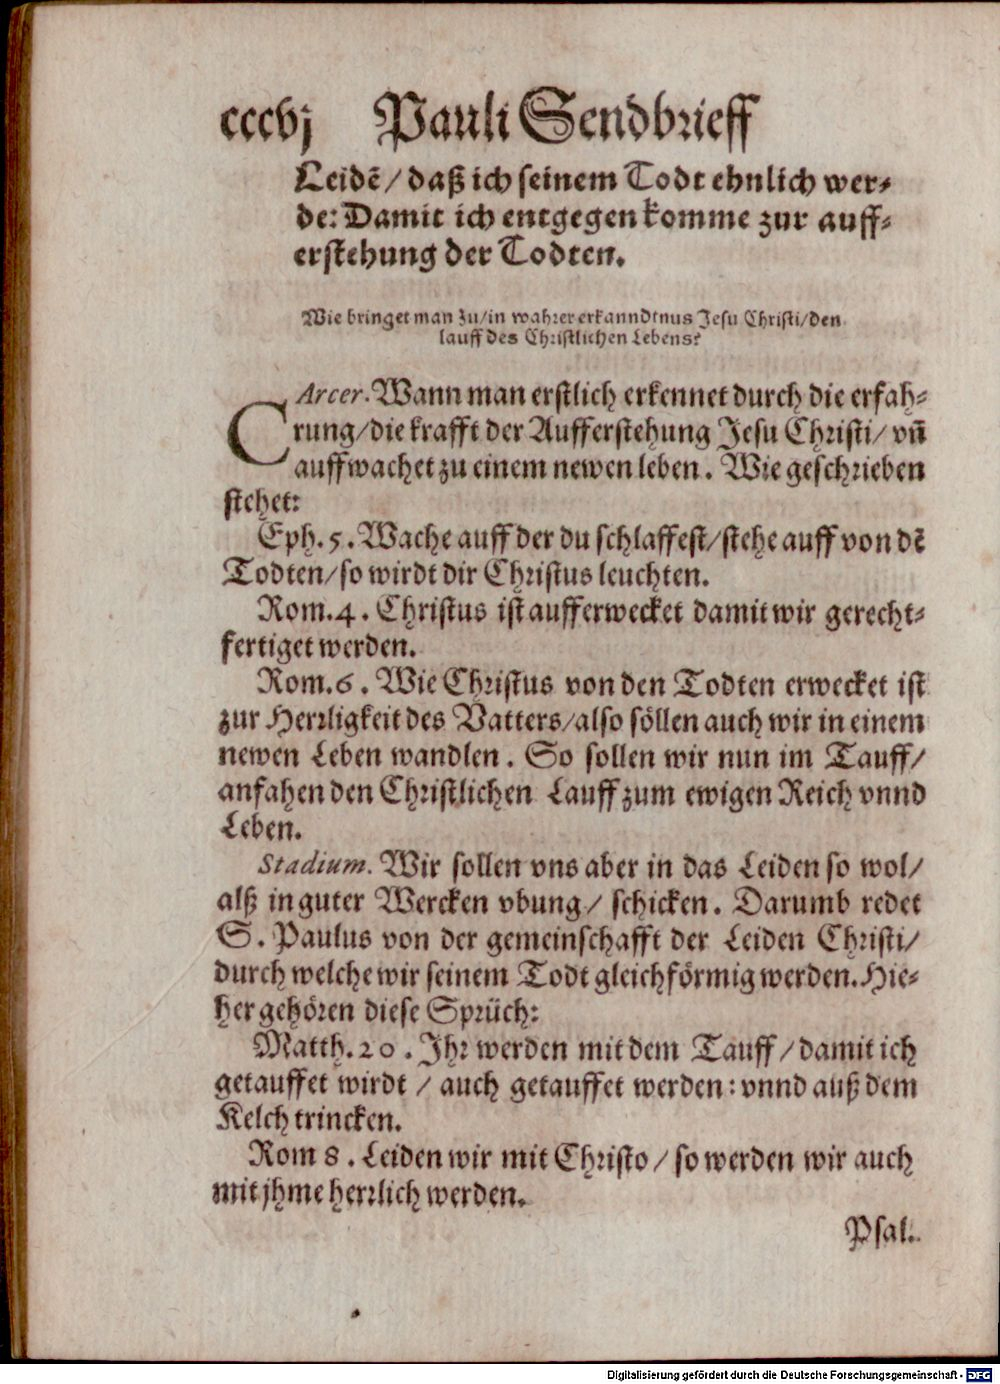 cccvj Pauli Sendbrieff
Leidẽ / daß ich seinem Todt ehnlich wer⸗
de: Damit ich entgegen komme zur auff⸗
erstehung der Todten.
Wie bringet man zu / in wahrer erkanndtnus Jesu Christi / den
lauff des Christlichen Lebens?
CArcer. Wann man erstlich erkennet durch die erfah⸗
rung / die krafft der Aufferstehung Jesu Christi / vñ
auffwachet zu einem newen leben. Wie geschrieben
stehet:
Eph. 5. Wache auff der du schlaffest / stehe auff von dẽ
Todten / so wirdt dir Christus leuchten.
Rom. 4. Christus ist aufferwecket damit wir gerecht⸗
fertiget werden.
Rom. 6. Wie Christus von den Todten erwecket ist
zur Herrligkeit des Vatters / also söllen auch wir in einem
newen Leben wandlen. So sollen wir nun im Tauff /
anfahen den Christlichen Lauff zum ewigen Reich vnnd
Leben.
Stadium. Wir sollen vns aber in das Leiden so wol /
alß in guter Wercken vbung / schicken. Darumb redet
S. Paulus von der gemeinschafft der Leiden Christi /
durch welche wir seinem Todt gleichförmig werden. Hie⸗
her gehören diese Sprüch:
Matth. 20. Jhr werden mit dem Tauff / damit ich
getauffet wirdt / auch getauffet werden: vnnd auß dem
Kelch trincken.
Rom 8. Leiden wir mit Christo / so werden wir auch
mit jhme herrlich werden.
Psal.
Digitalisierung gefördert durch die Deutsche Forschungsgemeinschaft - DFG